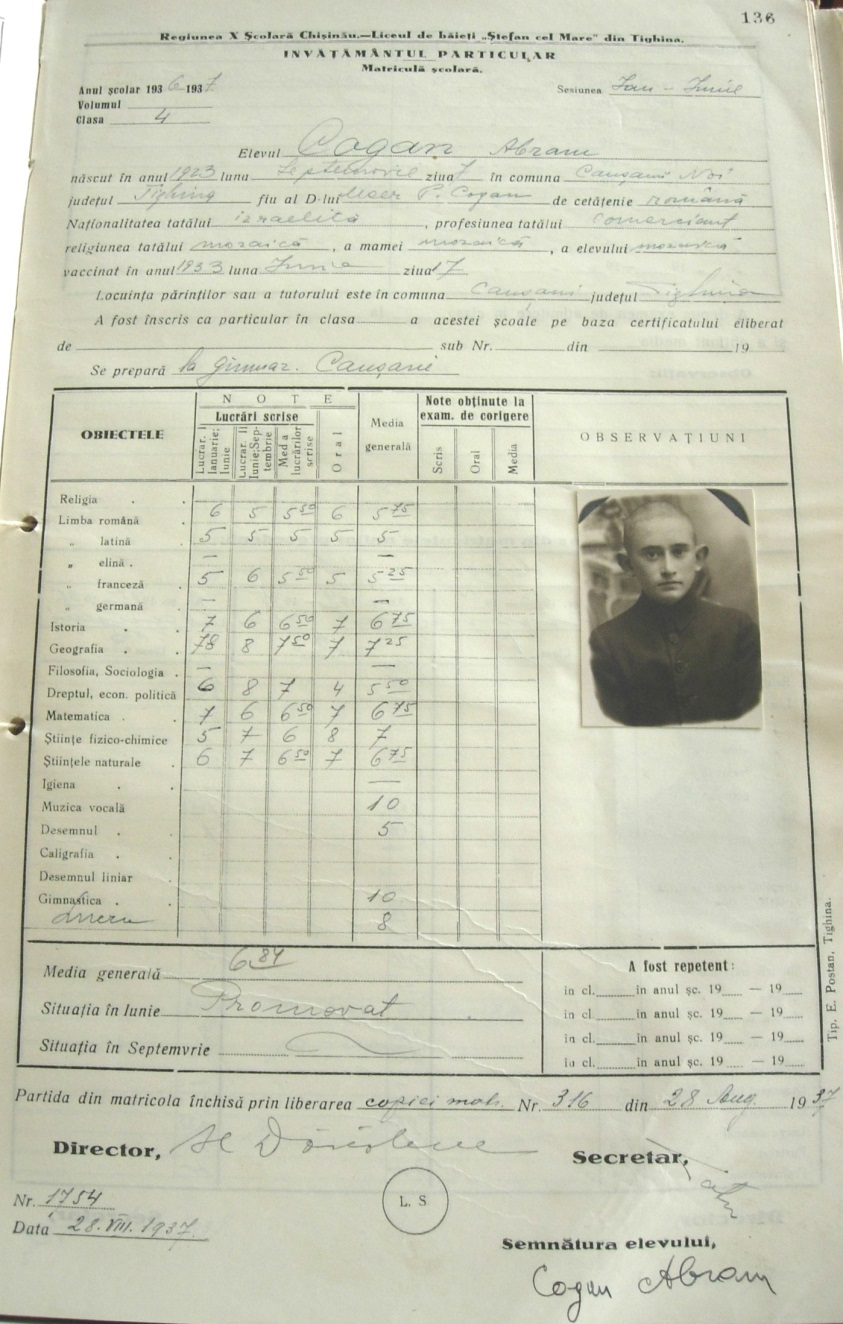 136
Regiunea X Școlară Chișinău.—Liceul de băieți „Ștefan cel Mare" din Tighina.
INVĂȚĂMÂNTUL PARTICULAR
Matriculă școlară.
Anul școlar 1936-1937
Sesiunea Ian - Iunie
Volumul
Clasa 4
Elevul Cogan Abram
născut în anul 1923 luna Septemvrie ziua 7 în comuna Caușanii Noi
județul Tighina fiu al D-lui P. Cogan de cetățenie română
Naționalitatea tatălui israelită, profesiunea tatălui comerciant
religiunea tatălui mozaică, a mamei mozaică, a elevului mozaică
vaccinat în anul 1933 luna Iunie ziua 17
Locuința părinților sau a tutorului este în comuna Caușani județul Tighina
A fost înscris ca particular în clasa a acestei școale pe baza certificatului eliberat
de sub Nr. din 19
Se prepară la gimnaz. Caușanii
OBIECTELE
NOTE
Lucrări scrise
Lucrar. I Ianuarie; Iunie
Lucrar. II Iunie; Septembrie
Media lucrărilor scrise
Oral
Media generală
Note obținute la exam. de corigere
Scris
Oral
Media
OBSERVAȚIUNI
Religia . .
Limba română . 6 5 5 50 6 5 75
„ latină . 5 5 5 5 5
„ elină . . — —
„ franceză . 5 6 5 50 5 5 25
„ germană . — —
Istoria . . 7 6 6 50 7 6 75
Geografia . . 78 8 7 50 7 7 25
Filosofia, Sociologia . — —
Dreptul, econ. politică 6 8 7 4 5 50
Matematica . . 7 6 6 50 7 6 75
Științe fizico-chimice 5 7 6 8 7
Științele naturale . 6 7 6 50 7 6 75
Igiena . . —
Muzica vocală 10
Desemnul . . 5
Caligrafia . .
Desemnul liniar
Gimnastica . . 10
Lucru 8
Media generală 6 84
Situația în Iunie Promovat
Situația în Septemvrie
A fost repetent:
in cl. in anul șc. 19 — 19
in cl. in anul șc. 19 — 19
in cl. in anul șc. 19 — 19
in cl. in anul șc. 19 — 19
Tip. E. Postan, Tighina.
Partida din matricola închisă prin liberarea copiei mat. Nr. 316 din 28 Aug 1937
Director,
Secretar,
L. S
Nr. 1754
Data 28.VIII.1937.
Semnătura elevului,
Cogan Abram